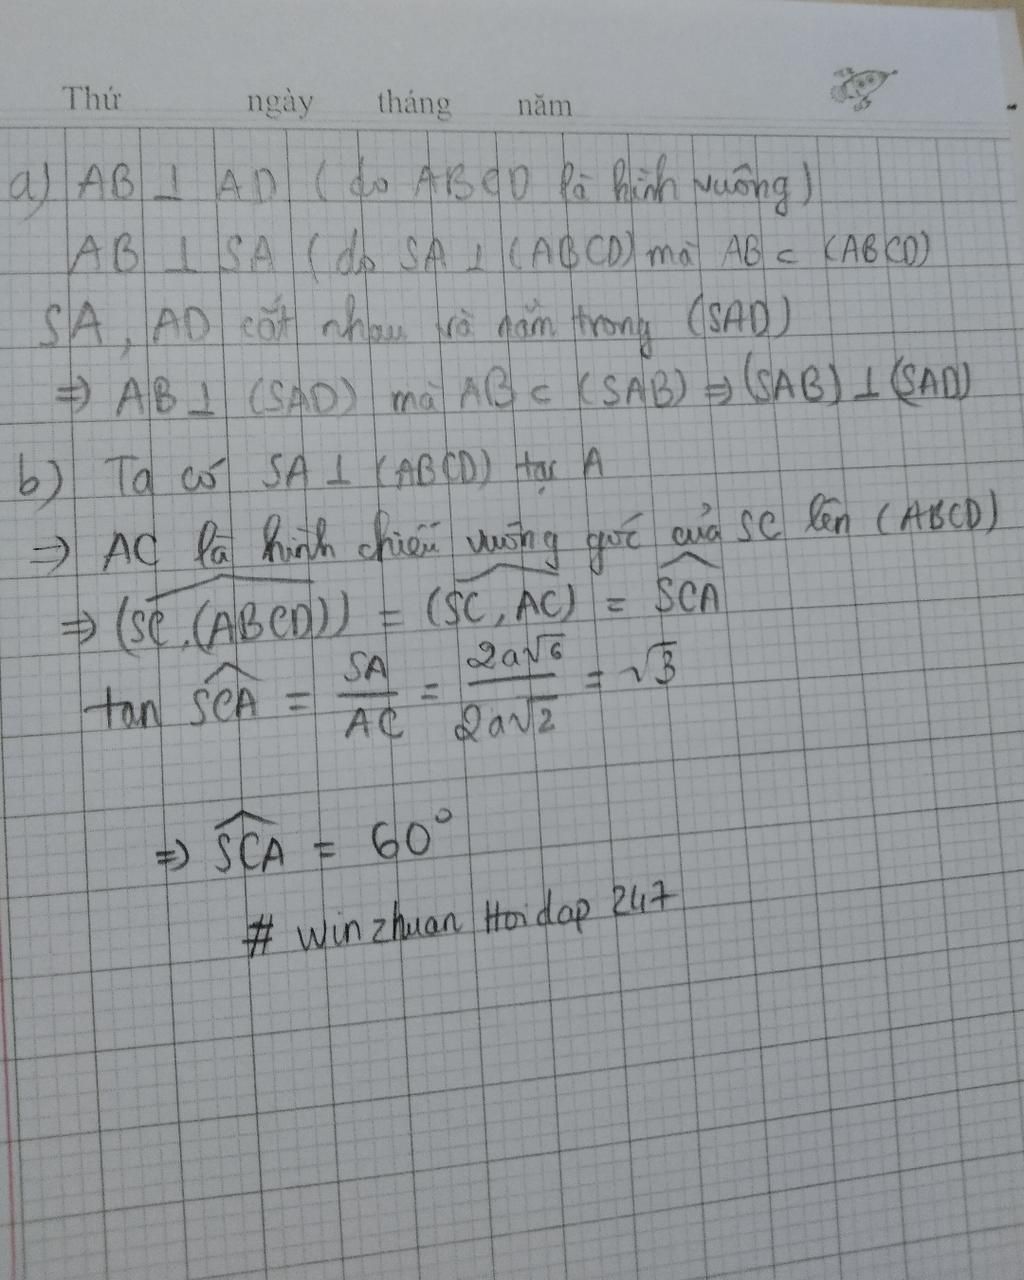 Thứ ngày tháng năm
a) AB ⊥ AD (do ABCD là hình vuông)
AB ⊥ SA (do SA ⊥ (ABCD) mà AB ⊂ (ABCD)
SA, AD cắt nhau và nằm trong (SAD)
⇒ AB ⊥ (SAD) mà AB ⊂ (SAB) ⇒ (SAB) ⊥ (SAD)
b) Ta có SA ⊥ (ABCD) tại A
⇒ AC là hình chiếu vuông góc của SC lên (ABCD)
⇒ (SC, (ABCD))^ = (SC, AC)^ = SCA^
tan SCA^ = SA/AC = 2a√6/2a√2 = √3
⇒ SCA^ = 60°
# winzhuan Hoidap 247